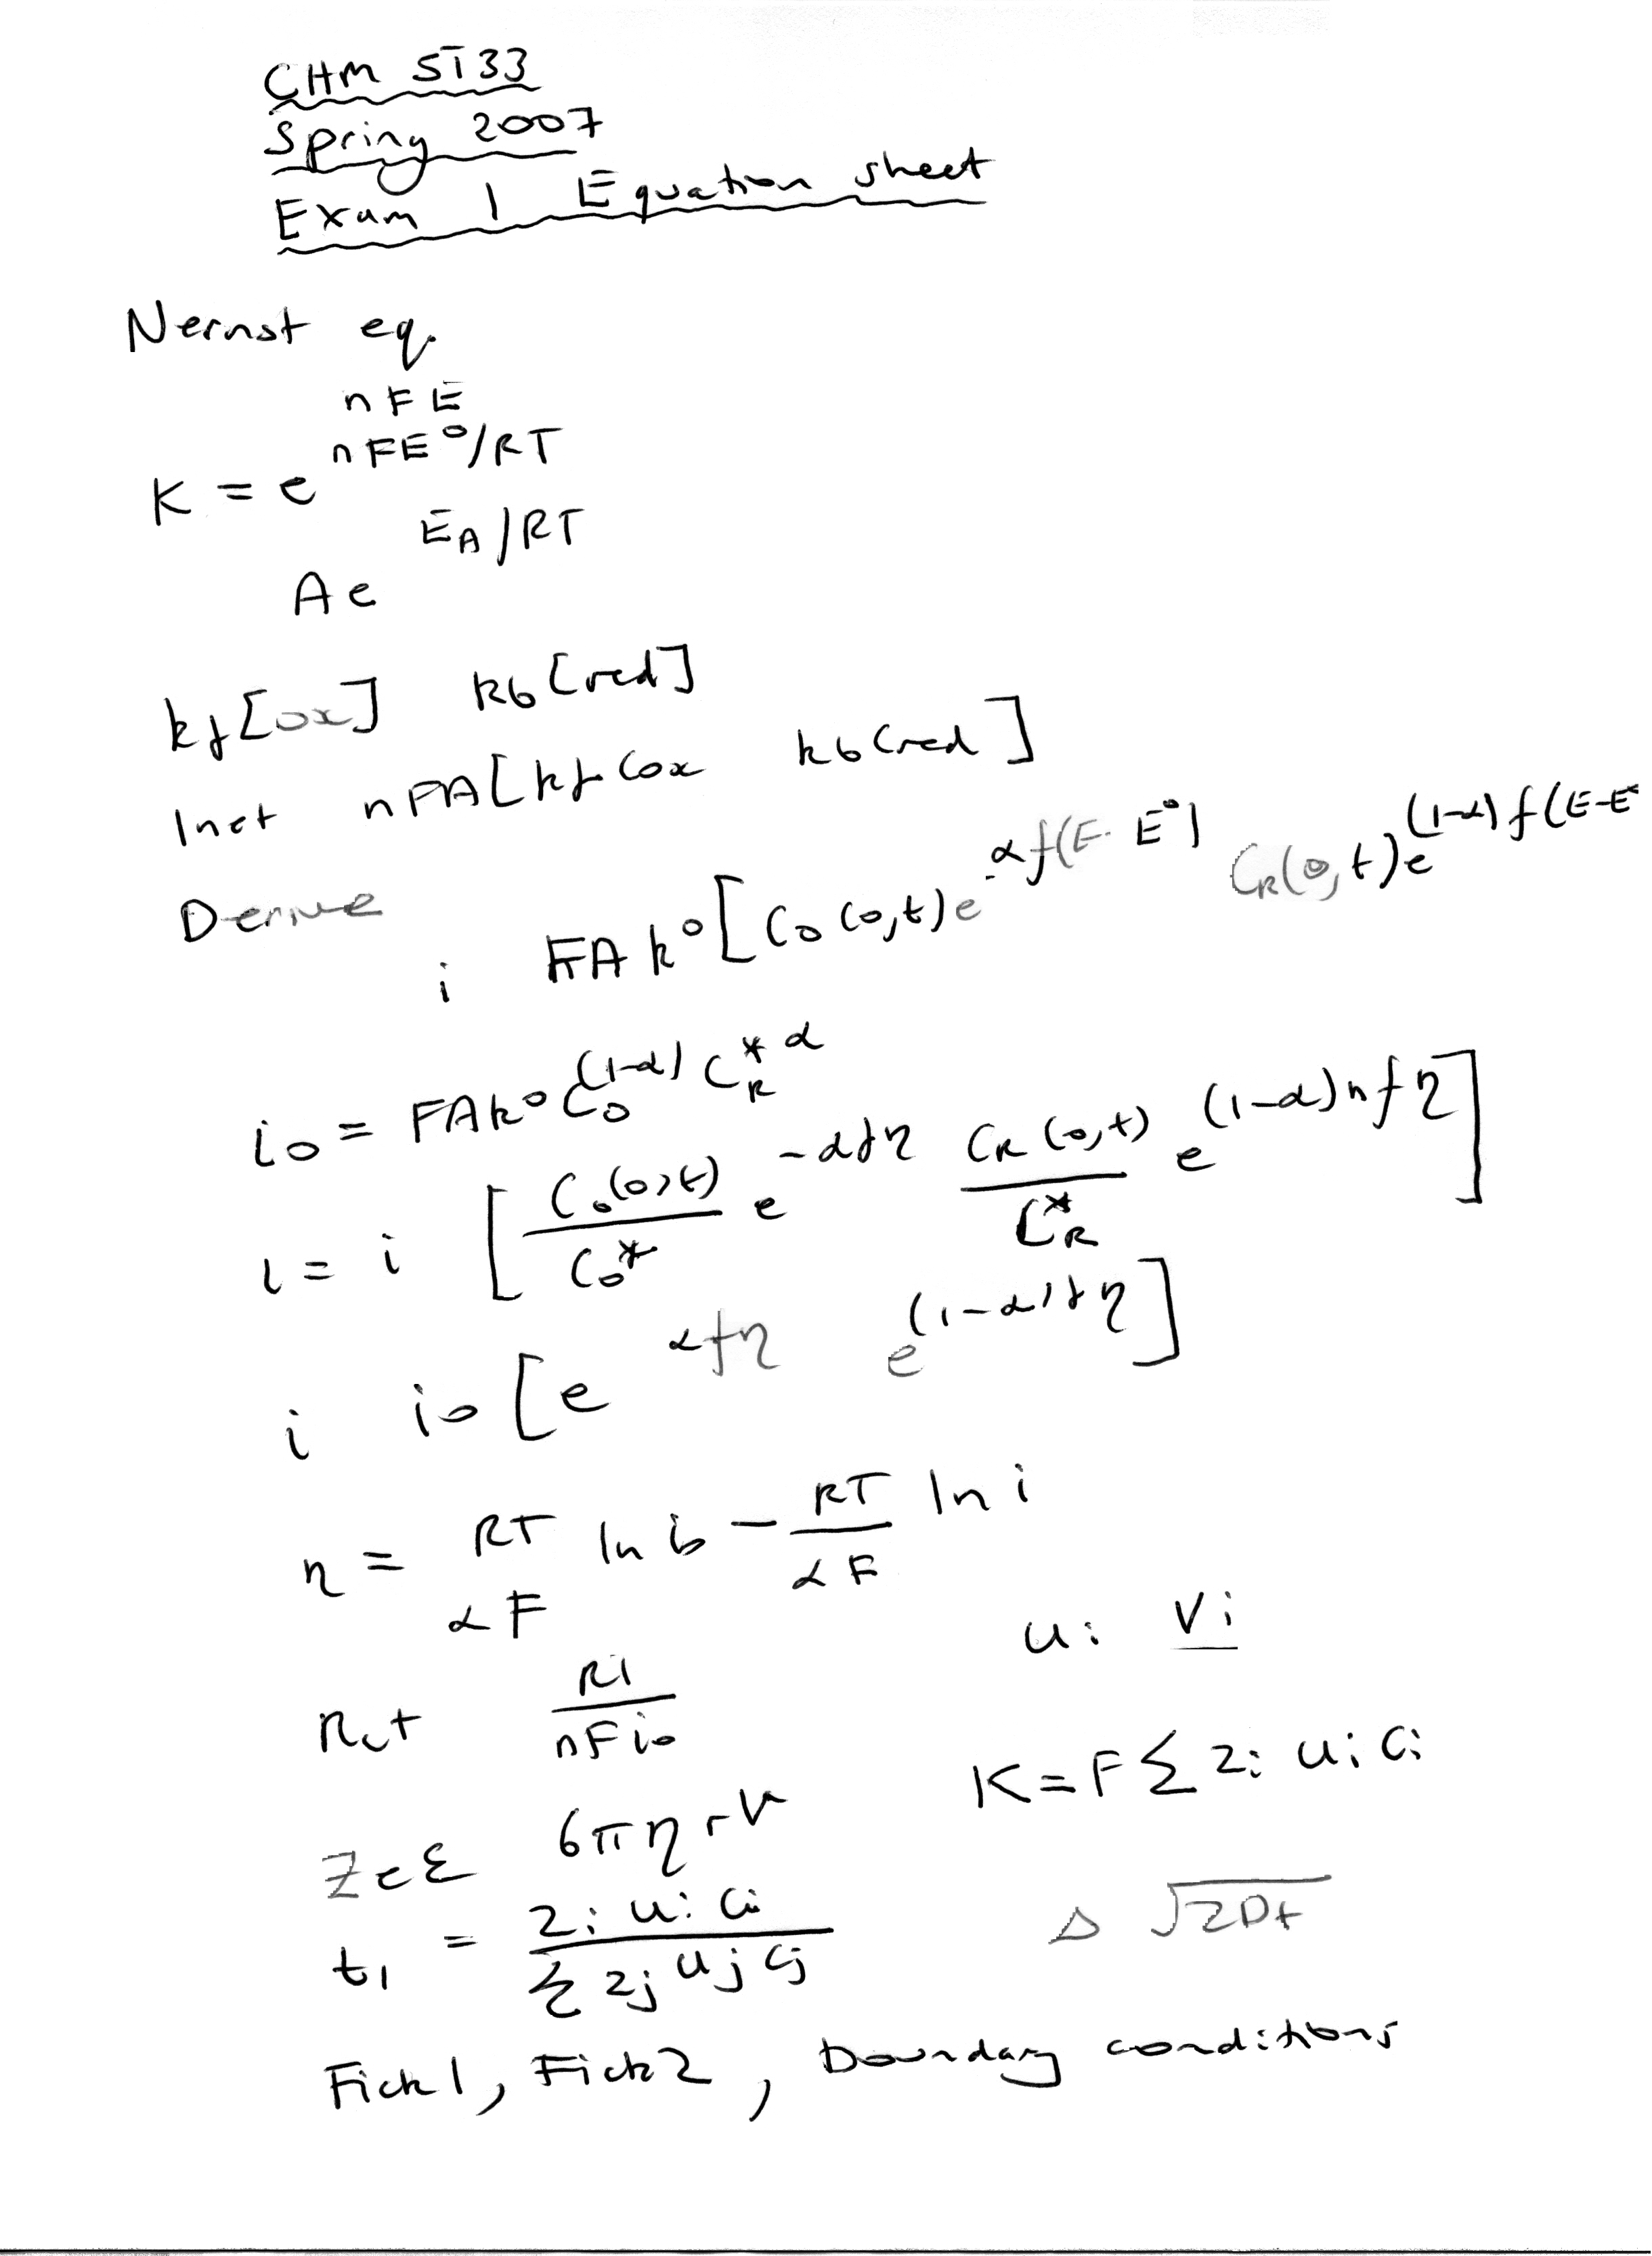 CHM 5133
Spring 2007
Exam 1 Equation sheet
Nernst eq.
nFE
K = e^{nFE°/RT}
A e^{E_A/RT}
kf[ox] kb[red]
inet nFA[kf Cox kb Cred]
Derive
i FAk°[C_O(0,t)e^{-αf(E-E°)} C_R(0,t)e^{(1-α)f(E-E°
i_0 = FAk° C_O^{(1-α)} C_R^{*α}
i = i [C_O(0,t)/C_O* e^{-αfη} C_R(0,t)/C_R* e^{(1-α)nfη}]
i i_0 [e^{αfη} e^{(1-α)fη}]
η = RT/αF ln i_0 - RT/αF ln i
u_i v_i
Rct RT/nFi_0
K = F Σ z_i u_i c_i
zeε 6πηrv
t_1 = z_i u_i c_i / Σ z_j u_j c_j
Δ √2Dt
Fick 1, Fick 2, boundary conditions